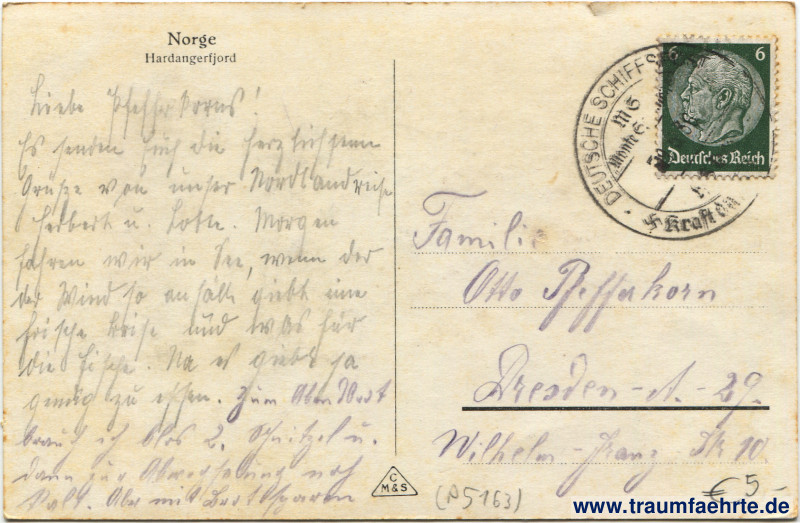 Norge
Hardangerfjord
Liebe Pfefferkorns!
Es senden Euch die herzlichsten
Grüße von unser Nordlandreise
Herbert u. Lotte. Morgen
fahren wir in See, wenn der
der Wind so anhält giebt eine
frische Brise und was für
die Fische. Na es giebt ja
genug zu essen. Zum Abendbrot
brauch ich blos 2. Schnitzel u.
dann zur Abwechselung noch
kalt. Aber mit Brot sparen
C
M&S
DEUTSCHE SCHIFFS
MS
Monte
Kraft du
6
6
Deutsches Reich
Familie
Otto Pfefferkorn
Dresden-A.-29.
Wilhelm-Franz Str 10
(P5163)
€ 5,-
www.traumfaehrte.de